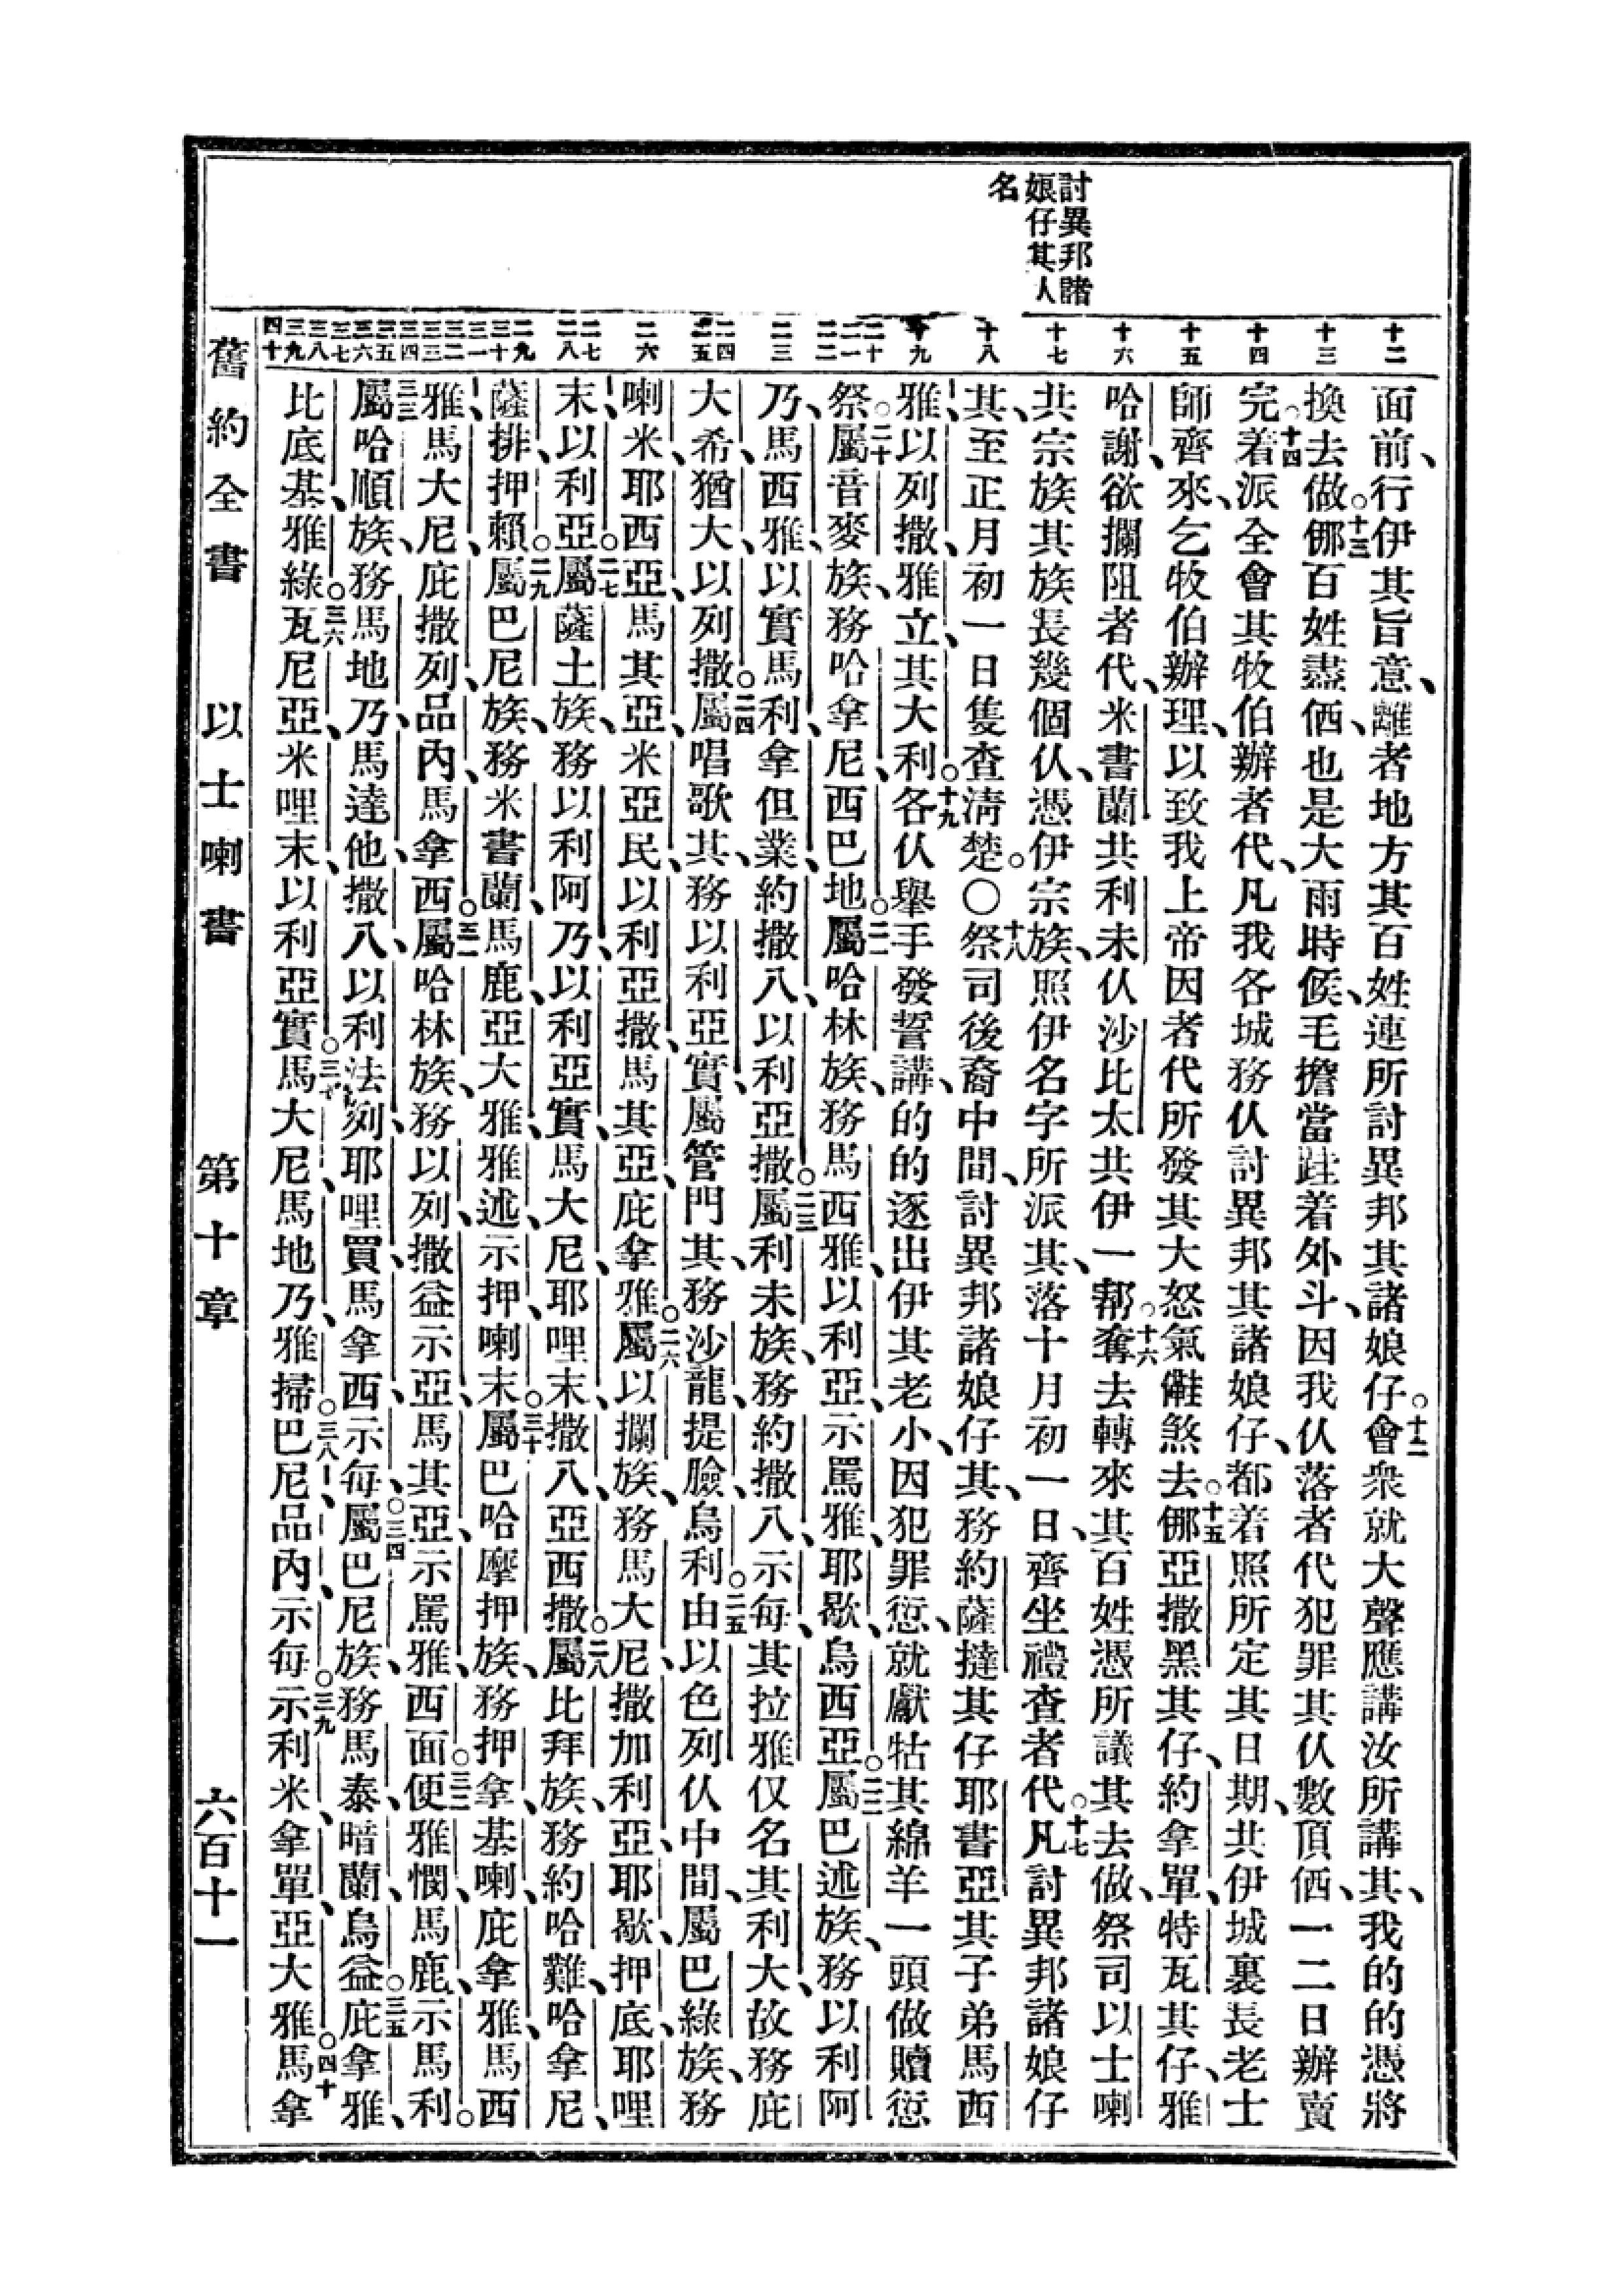 討異邦諸
娘仔其人
名
十二 十三 十四 十五 十六 十七 十八 十九 二十 二一 二二 二三 二四 二五 二六 二七 二八 二九 三十 三一 三二 三三 三四 三五 三六 三七 三八 三九 四十
面前、行伊其旨意、離者地方其百姓連所討異邦其諸娘仔。十二會衆就大聲應講汝所講其、我的的憑將
換去做。十三𠆧百姓盡価、也是大雨時候、毛擔當跬着外斗、因我仈落者代犯罪其仈數頂価、一二日辦賣
完。十四着派全會其牧伯辦者代、凡我各城務仈討異邦其諸娘仔、都着照所定其日期、共伊城裏長老士
師齊來、乞牧伯辦理、以致我上帝因者代所發其大怒氣𠊎煞去。十五𠆧亞撒黑其仔、約拿單、特瓦其仔、雅
哈謝、欲攔阻者代、米書蘭共利未仈沙比太共伊一帮。十六奪去轉來其百姓憑所議其去做、祭司以士喇
共宗族其族長幾個仈、憑伊宗族、照伊名字所派其、落十月初一日、齊坐禮查者代。十七凡討異邦諸娘仔
其、至正月初一日隻查淸楚。○十八祭司後裔中間、討異邦諸娘仔其、務約薩撻其仔耶書亞其子弟馬西
雅、以列撒、雅立、其大利。十九各仈舉手發誓講、的的逐出伊其老小、因犯罪愆、就獻牯其綿羊一頭做贖愆
祭。二十屬音麥族、務哈拿尼、西巴地。二一屬哈林族、務馬西雅、以利亞、示罵雅、耶歇、烏西亞。二二屬巴述族、務以利阿
乃、馬西雅、以實馬利、拿但業、約撒八、以利亞撒。二三屬利未族、務約撒八、示每、其拉雅仅名其利大、故務庇
大希、猶大、以列撒。二四屬唱歌其、務以利亞實、屬管門其、務沙龍、提臉、烏利。二五由以色列仈中間、屬巴綠族、務
喇米、耶西亞、馬其亞、米亞民、以利亞撒、馬其亞、庇拿雅。二六屬以攔族、務馬大尼、撒加利亞、耶歇、押底、耶哩
末、以利亞。二七屬薩土族、務以利阿乃、以利亞實、馬大尼、耶哩末、撒八、亞西撒。二八屬比拜族、務約哈難、哈拿尼
薩排、押賴。二九屬巴尼族、務米書蘭、馬鹿、亞大雅、雅述、示押、喇末。三十屬巴哈摩押族、務押拿、基喇、庇拿雅、馬西
雅、馬大尼、庇撒列、品內、馬拿西。三一屬哈林族、務以列撒、益示亞、馬其亞、示罵雅、西面。三二便雅憫、馬鹿、示馬利。
三三屬哈順族、務馬地乃、馬達他、撒八、以利法列、耶哩買、馬拿西、示每。三四屬巴尼族、務馬泰、暗蘭、烏益。三五庇拿雅、
比底基、雅綠。三六瓦尼亞、米哩末、以利亞實。三七馬大尼、馬地乃、雅掃。三八巴尼、品內、示每。三九示利米、拿單、亞大雅。四十馬拿
舊約全書 以士喇書 第十章 六百十一